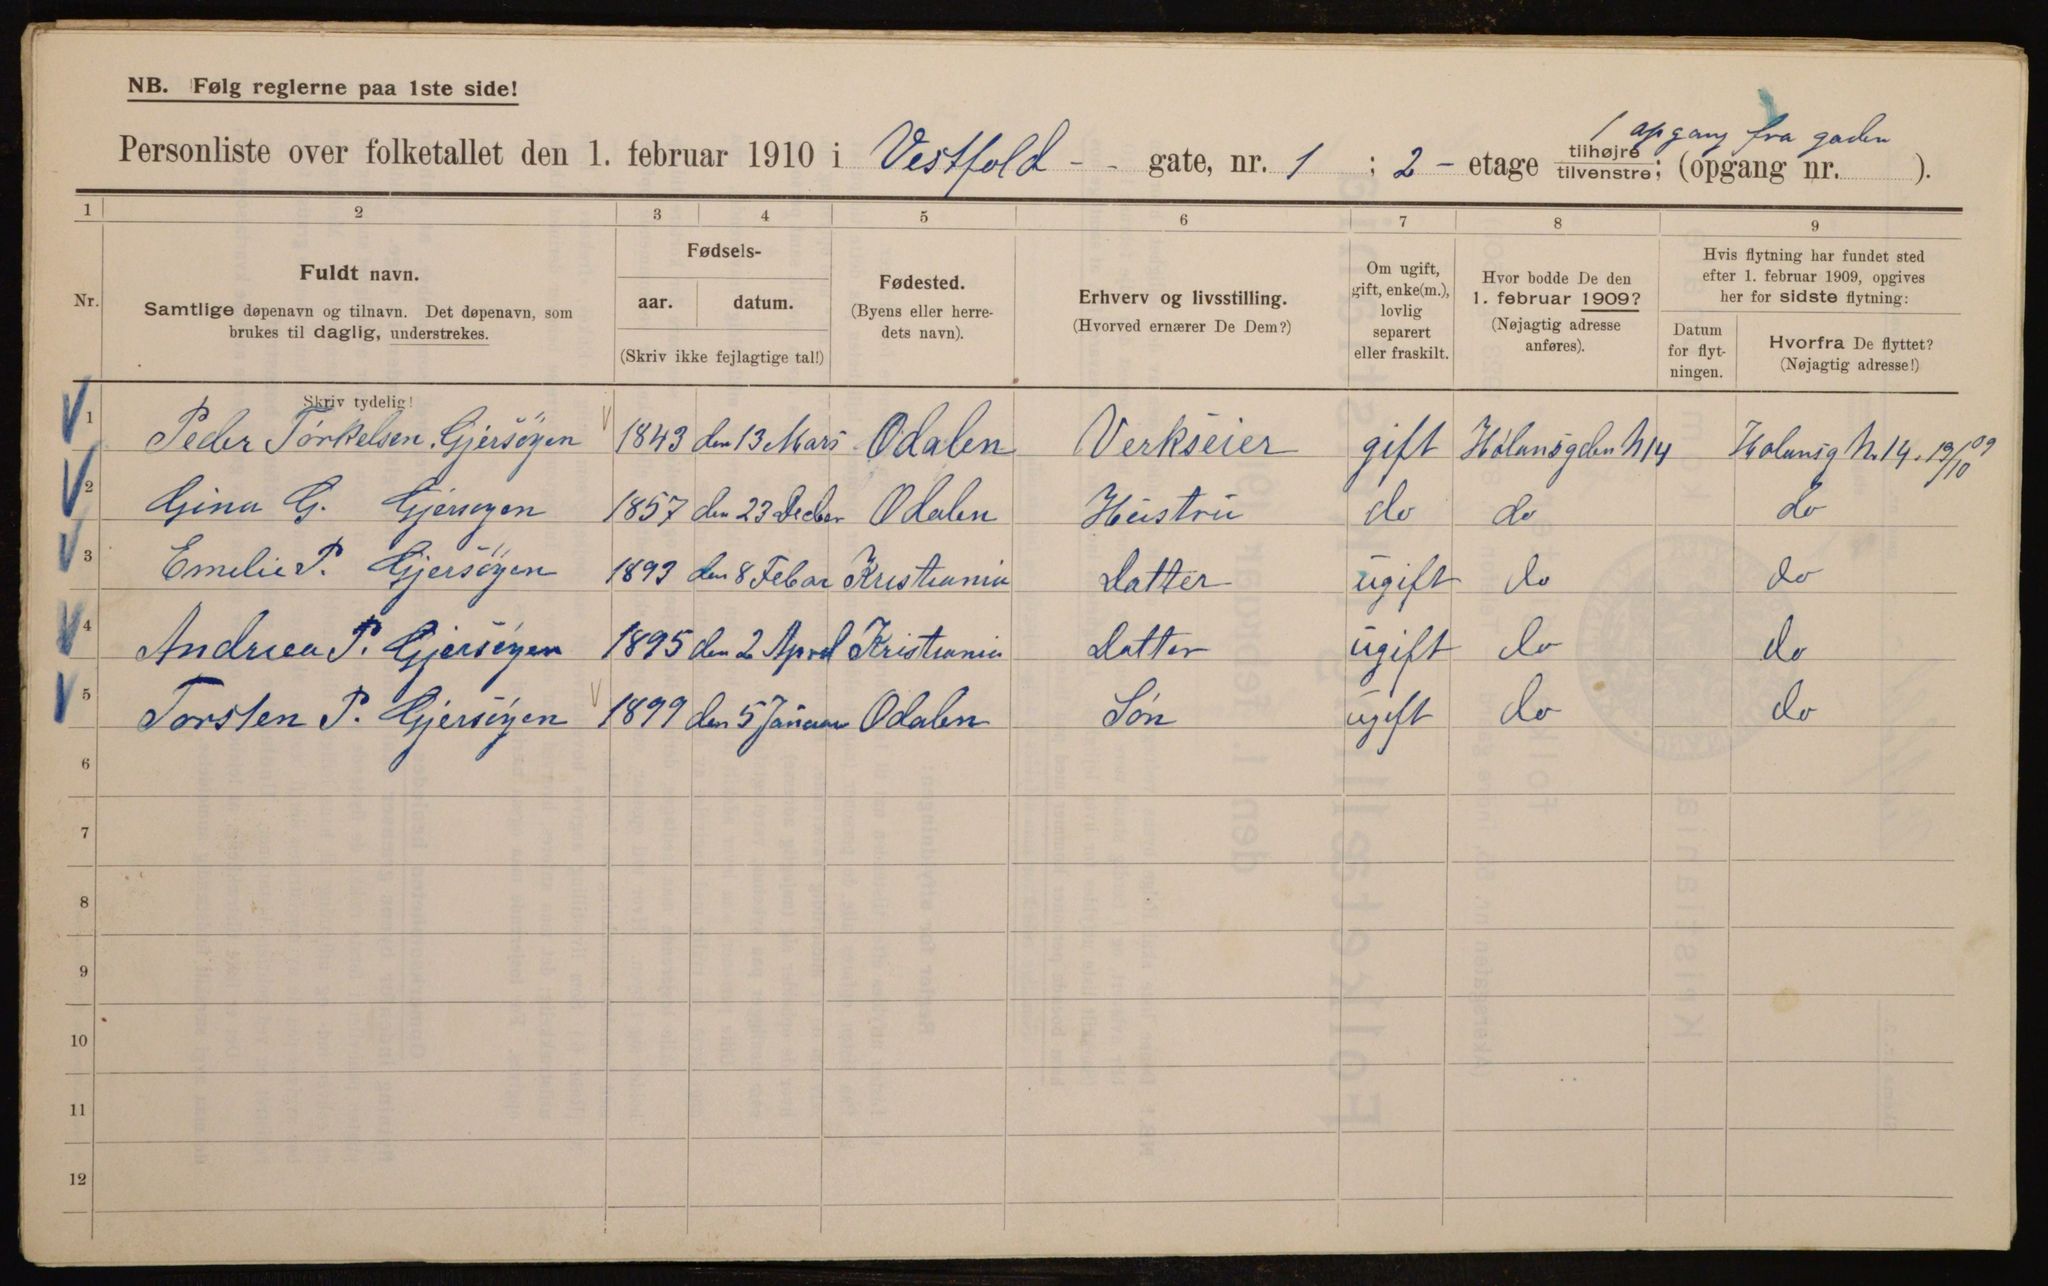 NB. Følg reglerne paa 1ste side!
1 opgang fra gaden
Personliste over folketallet den 1. februar 1910 i Vestfold - - gate, nr. 1 ; 2 - etage tilhøjre tilvenstre; (opgang nr. ).
1 2 3 4 5 6 7 8 9
Nr.
Fuldt navn.
Samtlige døpenavn og tilnavn. Det døpenavn, som
brukes til daglig, understrekes.
Skriv tydelig!
Fødsels-
aar. datum.
(Skriv ikke fejlagtige tal!)
Fødested.
(Byens eller herre-
dets navn).
Erhverv og livsstilling.
(Hvorved ernærer De Dem?)
Om ugift,
gift, enke(m.),
lovlig
separert
eller fraskilt.
Hvor bodde De den
1. februar 1909?
(Nøjagtig adresse
anføres).
Hvis flytning har fundet sted
efter 1. februar 1909, opgives
her for sidste flytning:
Datum
for flyt-
ningen.
Hvorfra De flyttet?
(Nøjagtig adresse!)
1 Peder Törkelsen Gjersöyen 1843 den 13 Mars Odalen Verkseier gift Holansgden N 14 Holansg N. 14. 19/10 09
2 Gina G. Gjersoyen 1857 den 23 Decber Odalen Heüstrü do do do
3 Emelie P. Gjersöyen 1893 den 8 Febar Kristiania Datter ugift do do
4 Andrea P. Gjersöyen 1895 den 2 April Kristiania Datter ugift do do
5 Torsten P. Gjersöyen 1899 den 5 Januar Odalen Sön ugift do do
6
7
8
9
10
11
12